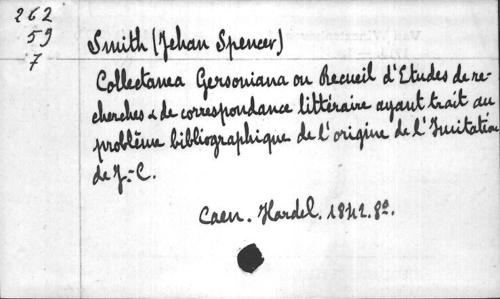 262
59
7
Smith (Jehan Spencer)
Collectanea Gersoniana ou Recueil d'Etudes de re-
cherches & de correspondance littéraire ayant trait au
problème bibliographique de l'origine de l'Imitation
de J.-C.
Caen. Hardel. 1842. 8º.